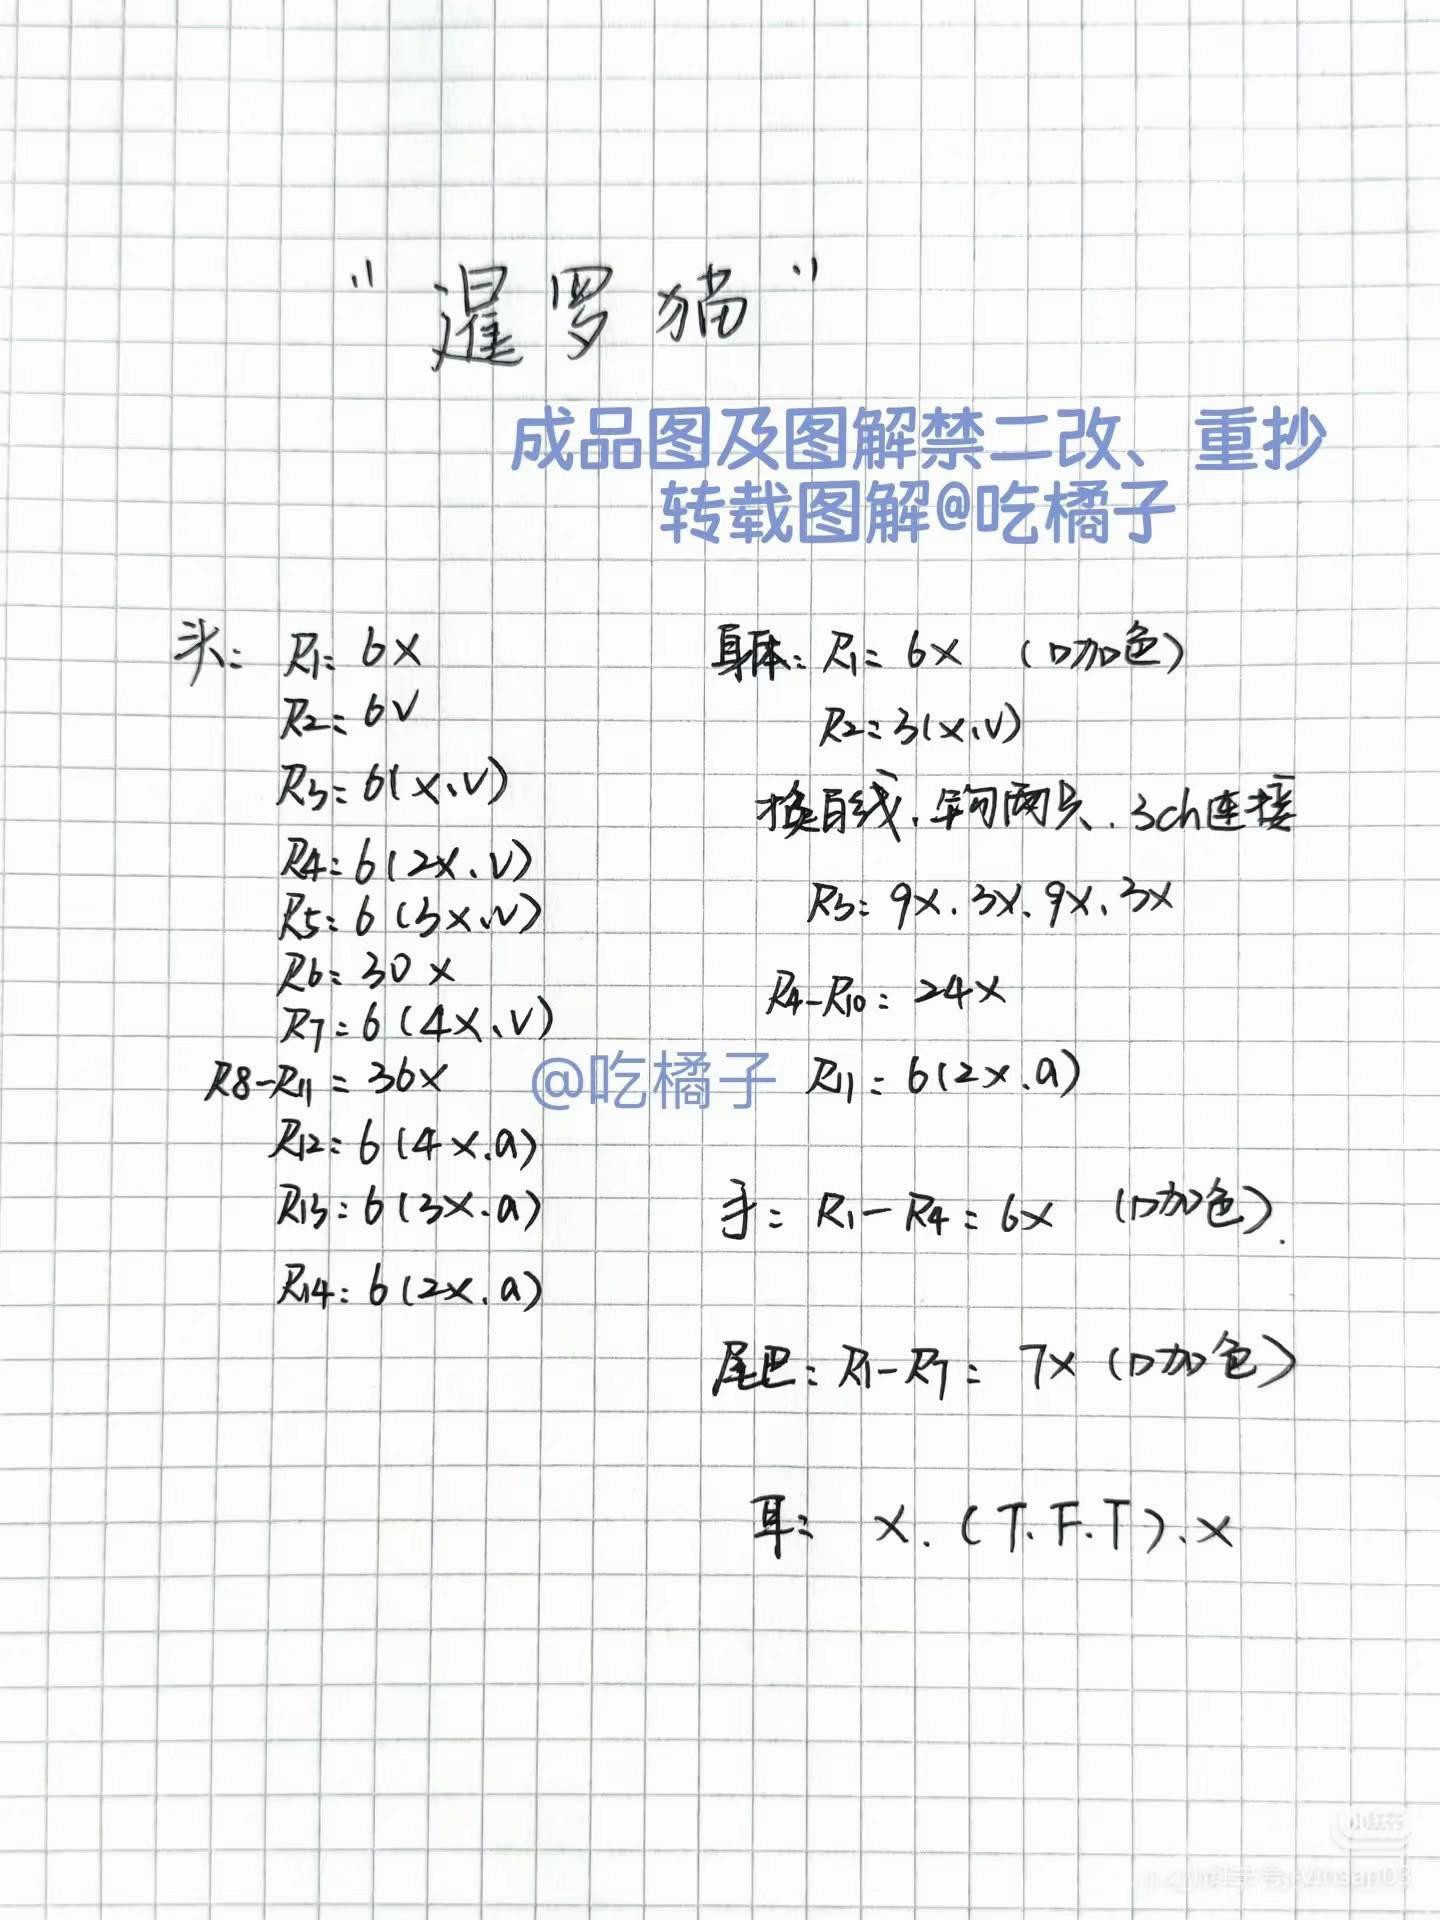 “暹罗猫”
成品图及图解禁二改、重抄
转载图解@吃橘子
头: R1: 6X
R2: 6V
R3: 6(X、V)
R4: 6(2X、V)
R5: 6(3X、V)
R6: 30X
R7: 6(4X、V)
R8-R11: 36X
R12: 6(4X.A)
R13: 6(3X.A)
R14: 6(2X.A)
@吃橘子
身体: R1: 6X (口加色)
R2: 3(X、V)
换白线、钩两只、3ch连接
R3: 9X.3X、9X、3X
R4-R10: 24X
R11: 6(2X.A)
手: R1-R4: 6X (口加色).
尾巴: R1-R7: 7X (口加色)
耳: X.(T.F.T)、X
小红书